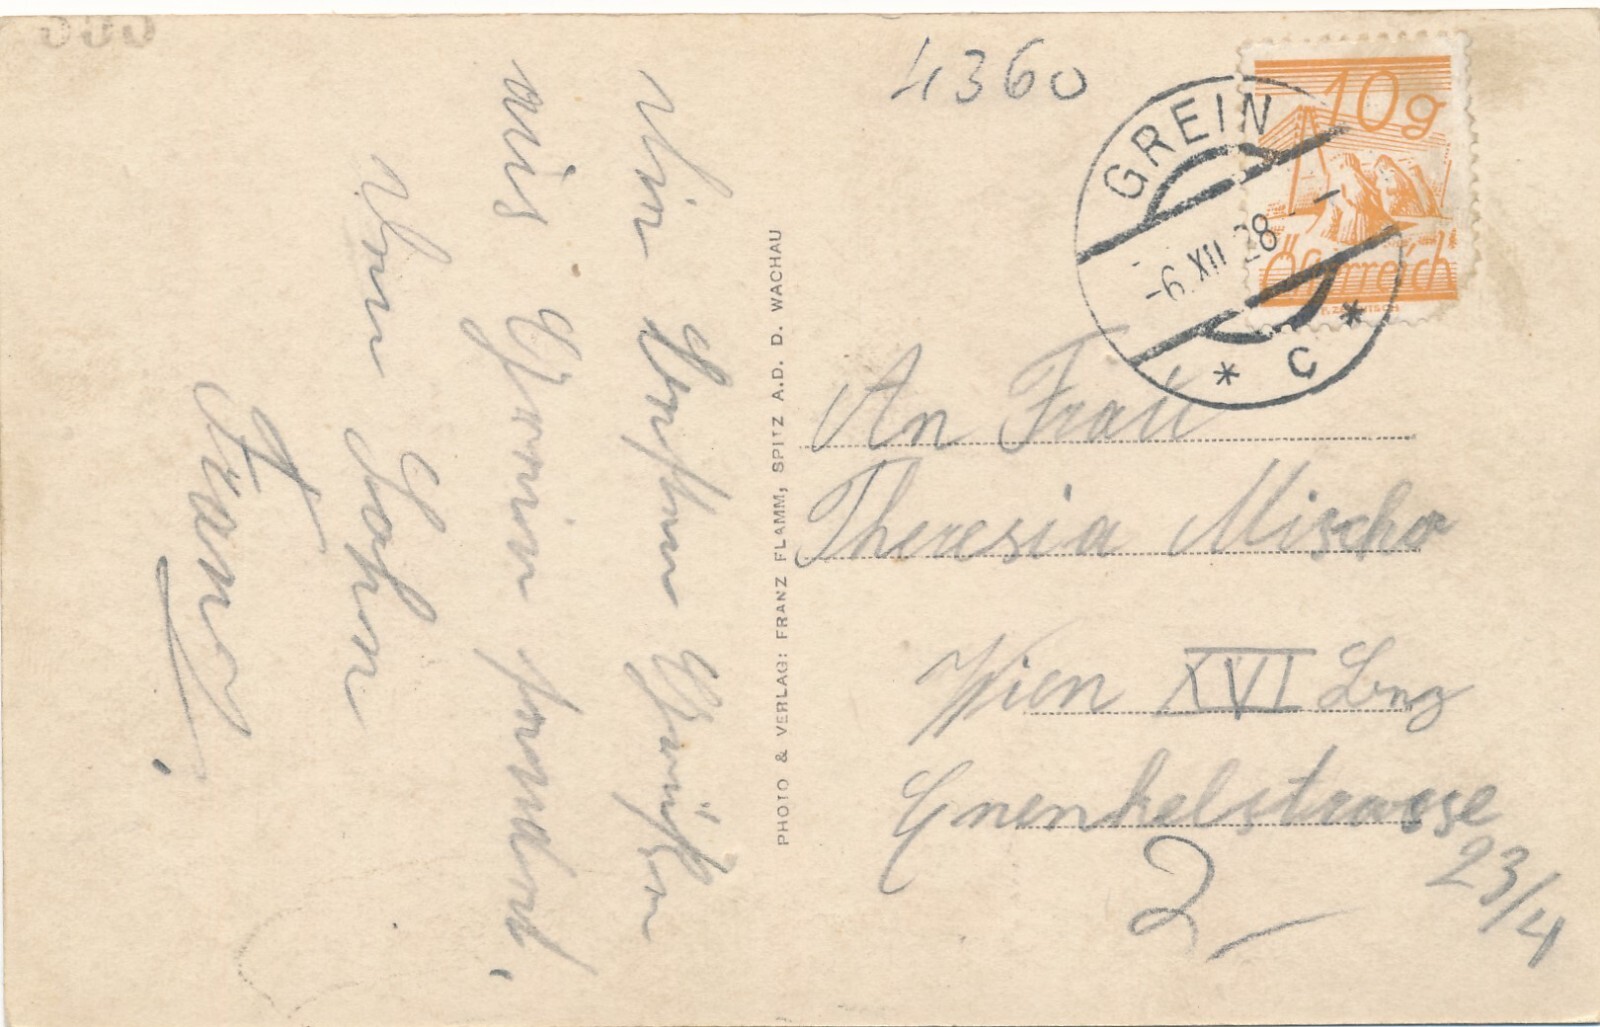 Die besten Grüßen
aus Grein sendet,
Dein Sohn
Franz.
PHOTO & VERLAG: FRANZ FLAMM, SPITZ A.D. D. WACHAU
4360
10g
Österreich
GREIN
-6.XII 28
* C *
An Frau
Theresia
Wien XVI
23/4
2